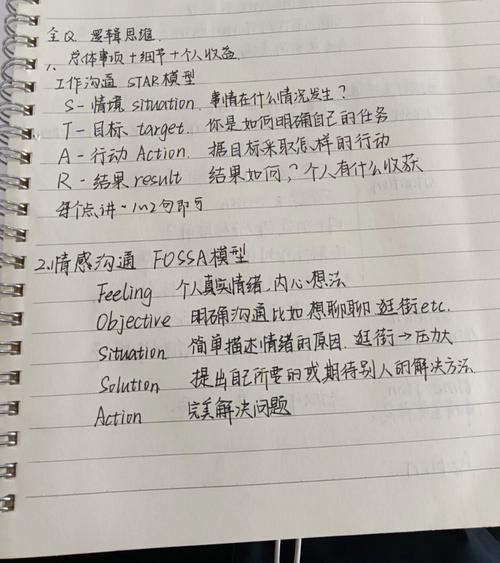 全Q 逻辑思维.
1. 总体事项+细节+个人收益
工作沟通 STAR模型
S-情境 situation. 事情在什么情况发生?
T-目标 target. 你是如何明确自己的任务
A-行动 Action. 据目标采取怎样的行动
R-结果 result 结果如何,? 个人有什么收获
每个点讲一1～2句即可
2.情感沟通 FOSSA模型
Feeling 个人真实情绪.内心想法
Objective 明确沟通比如想聊聊 逛街etc.
Situation 简单描述情绪的原因. 逛街→压力大
Solution 提出自己所要的或期待别人的解决方法.
Action 完美解决问题